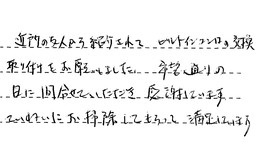 近所の友人から紹介されて ビルトインコンロの交換
取り付をお願いしました。希望通りの
日に間合せていただき感謝しています
ていねいにお掃除して もらって 満足しています